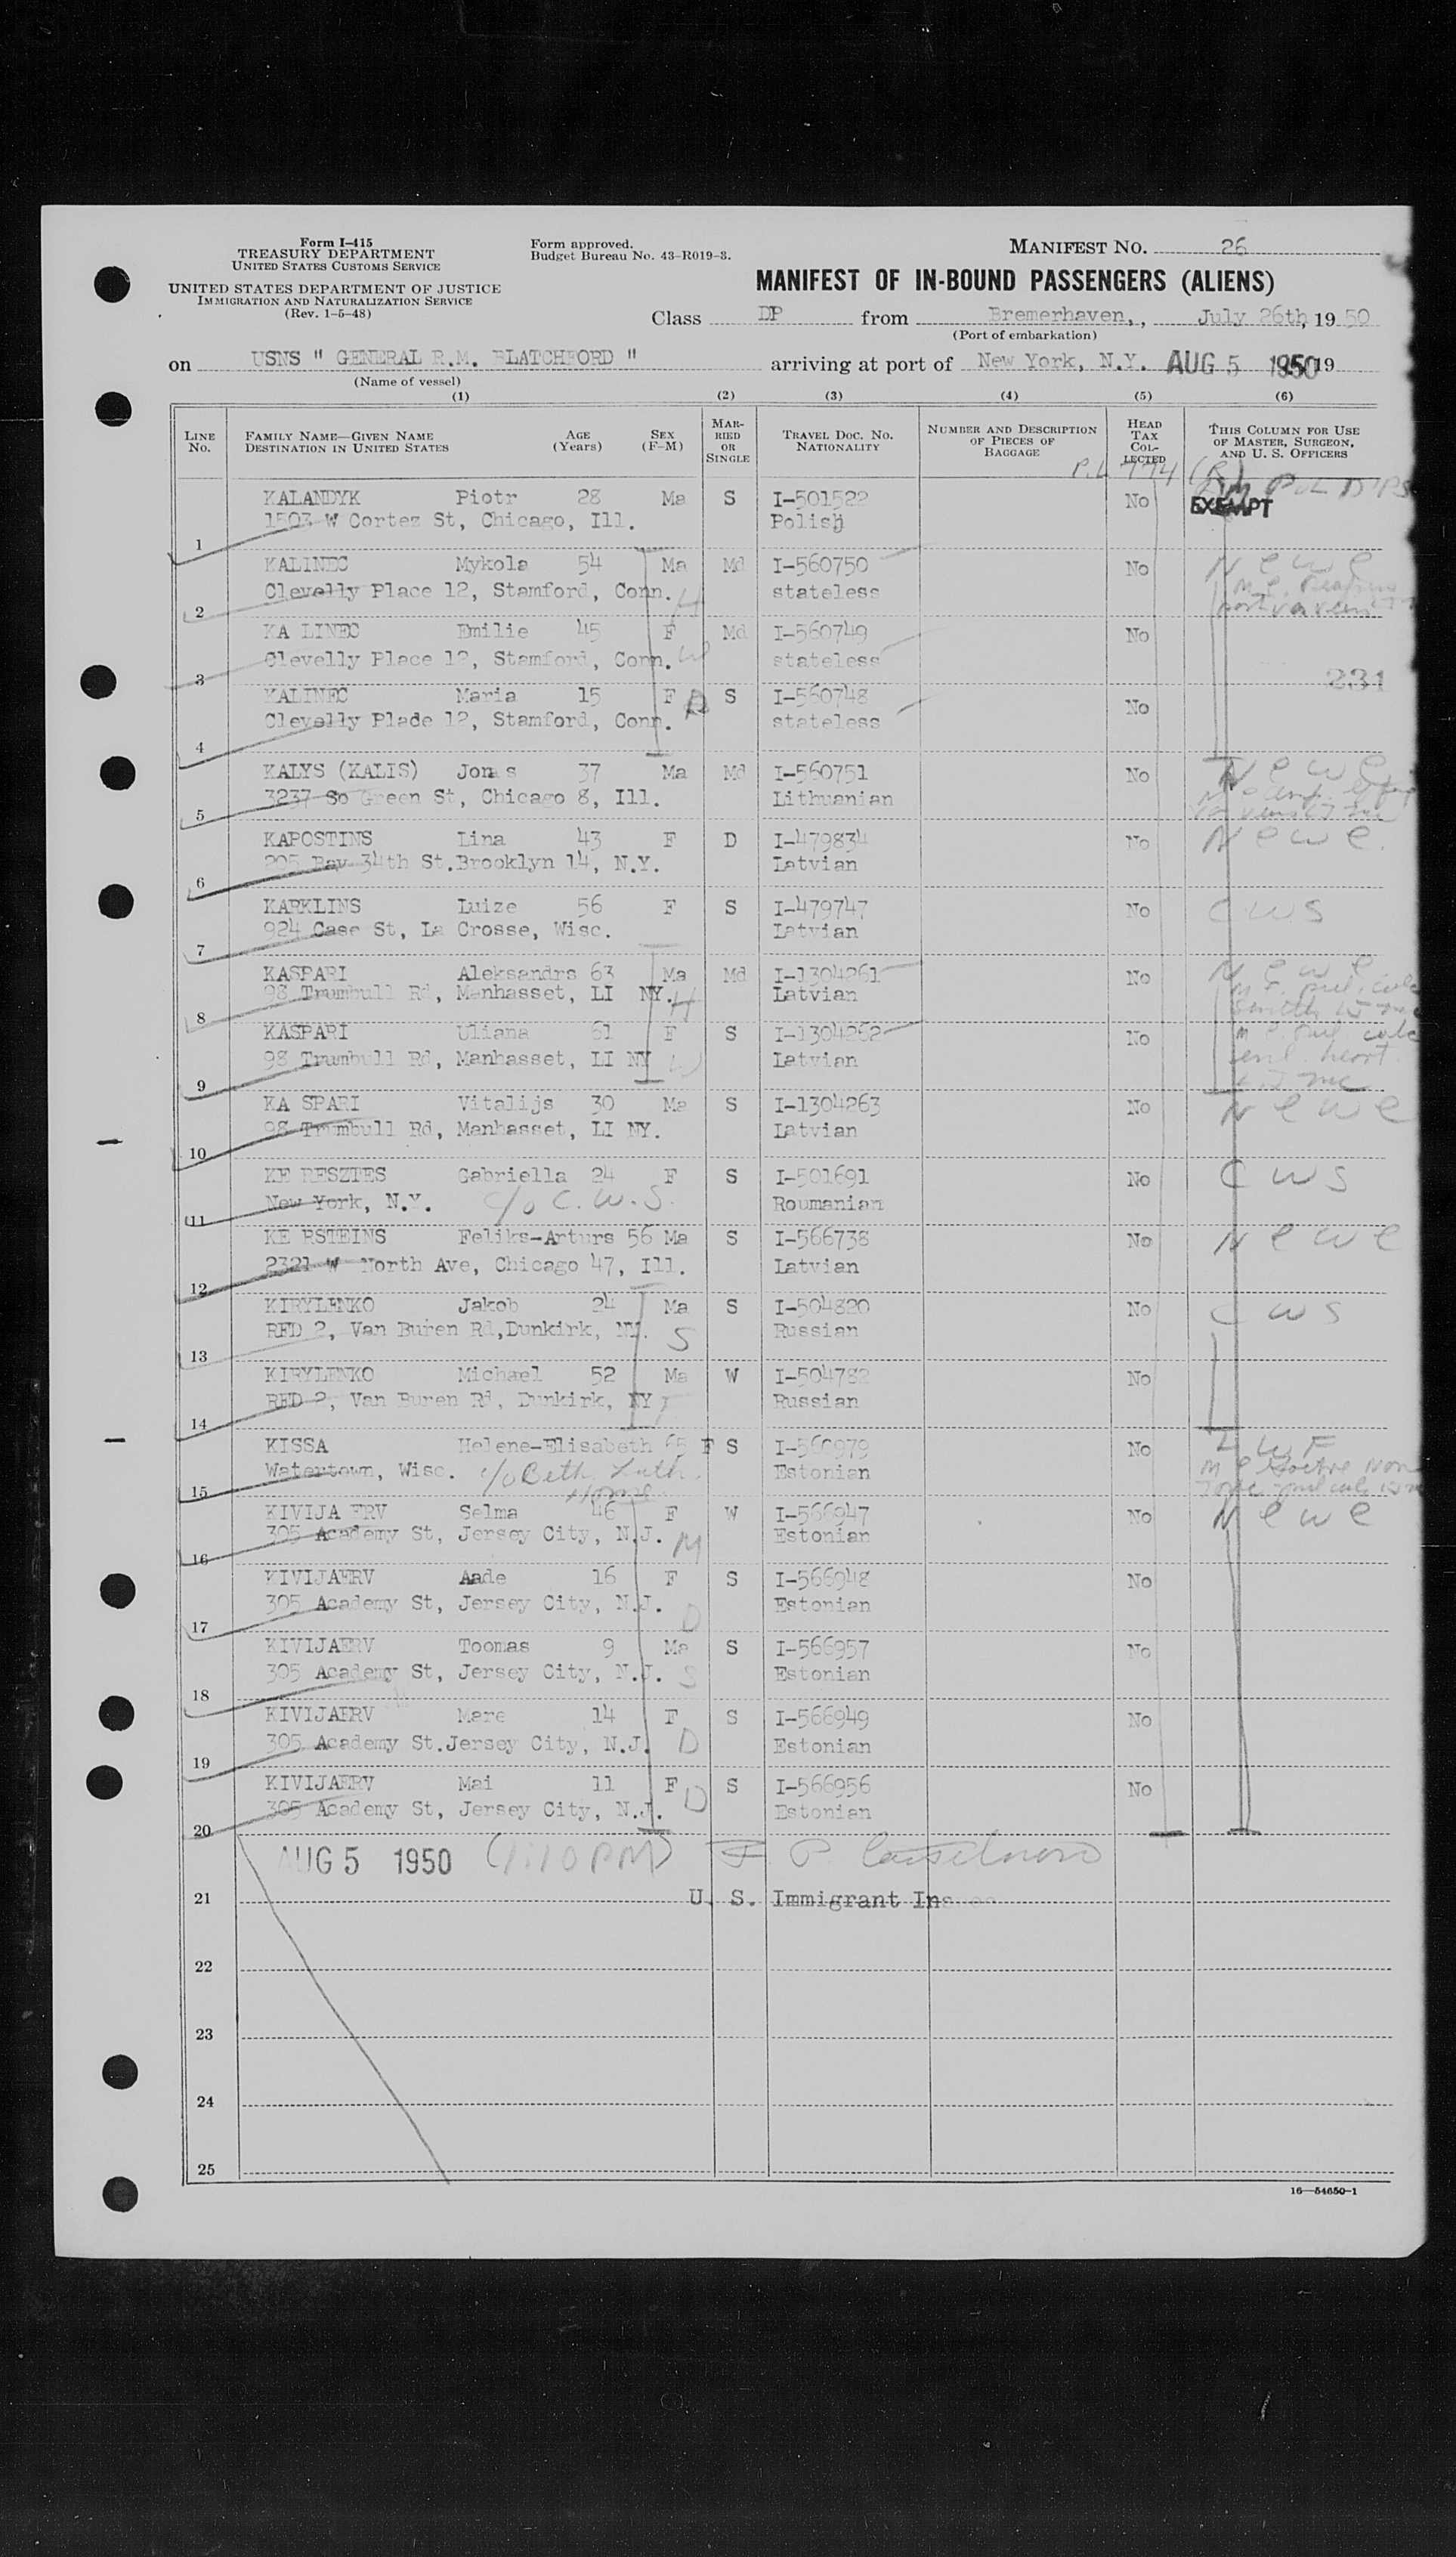 Form I-415
TREASURY DEPARTMENT
UNITED STATES CUSTOMS SERVICE
UNITED STATES DEPARTMENT OF JUSTICE
IMMIGRATION AND NATURALIZATION SERVICE
(Rev. 1-5-48)
Form approved.
Budget Bureau No. 43-R019-3.
MANIFEST NO. 26
MANIFEST OF IN-BOUND PASSENGERS (ALIENS)
Class DP from Bremerhaven, , July 26th, 19 50
(Port of embarkation)
on USNS " GENERAL R.M. BLATCHFORD " arriving at port of New York, N.Y. AUG 5 1950 19
(Name of vessel)
(1) (2) (3) (4) (5) (6)
LINE No. FAMILY NAME—GIVEN NAME DESTINATION IN UNITED STATES AGE (Years) SEX (F-M) MARRIED OR SINGLE TRAVEL DOC. NO. NATIONALITY NUMBER AND DESCRIPTION OF PIECES OF BAGGAGE HEAD TAX COLLECTED THIS COLUMN FOR USE OF MASTER, SURGEON, AND U. S. OFFICERS
P.L 774 (R)
KALANDYK Piotr 28 Ma S I-501522 No EXEMPT
1 1503 W Cortez St, Chicago, Ill. Polish
KALINEC Mykola 54 Ma Md I-560750 No N e w e
2 Clevelly Place 12, Stamford, Conn. H stateless
KA LINEC Emilie 45 F Md I-560749 No
3 Clevelly Place 12, Stamford, Conn. W stateless
231
KALINEC Maria 15 F D S I-560748 No
4 Clevelly Plade 12, Stamford, Conn. stateless
KALYS (KALIS) Jonas 37 Ma Md I-560751 No N e w e
5 3237 So Green St, Chicago 8, Ill. Lithuanian
KAPOSTINS Lina 43 F D I-479834 No N e w e.
6 205 Bay 34th St.Brooklyn 14, N.Y. Latvian
KARKLINS Luize 56 F S I-479747 No C W S
7 924 Case St, La Crosse, Wisc. Latvian
KASPARI Aleksandrs 63 Ma Md I-1304261 No N e w e
8 98 Trumbull Rd, Manhasset, LI NY. H Latvian
KASPARI Uliana 61 F S I-1304262 No
9 98 Trumbull Rd, Manhasset, LI NY W Latvian
KA SPARI Vitalijs 30 Ma S I-1304263 No N e w e
10 98 Trumbull Rd, Manhasset, LI NY. Latvian
KE RESZTES Gabriella 24 F S I-501691 No C W S
11 New York, N.Y. c/o C. W. S. Roumanian
KE RSTEINS Feliks-Arturs 56 Ma S I-566738 No N e w e
12 2321 W North Ave, Chicago 47, Ill. Latvian
KIRYLENKO Jakob 24 Ma S I-504820 No C W S
13 RFD 2, Van Buren Rd,Dunkirk, NY. S Russian
KIRYLENKO Michael 52 Ma W I-504782 No
14 RFD 2, Van Buren Rd, Dunkirk, NY F Russian
KISSA Helene-Elisabeth 65 F S I-560979 No L W F
15 Watertown, Wisc. c/o Beth. Luth. Home Estonian
KIVIJA ERV Selma 46 F W I-566947 No N e w e
16 305 Academy St, Jersey City, N.J. M Estonian
KIVIJAERV Aade 16 F S I-566948 No
17 305 Academy St, Jersey City, N.J. D Estonian
KIVIJAERV Toomas 9 Ma S I-566957 No
18 305 Academy St, Jersey City, N.J. S Estonian
KIVIJAERV Mare 14 F S I-566949 No
19 305 Academy St.Jersey City, N.J. D Estonian
KIVIJAERV Mai 11 F D S I-566956 No
20 305 Academy St, Jersey City, N.J. Estonian
AUG 5 1950 (1:10 PM)
21 U. S. Immigrant Ins
22
23
24
25
16—54650-1